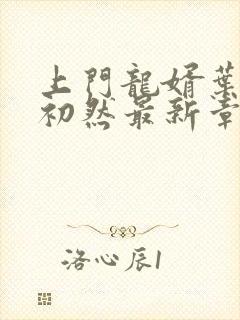 上門龍婿葉
初然最新章
洛心辰1